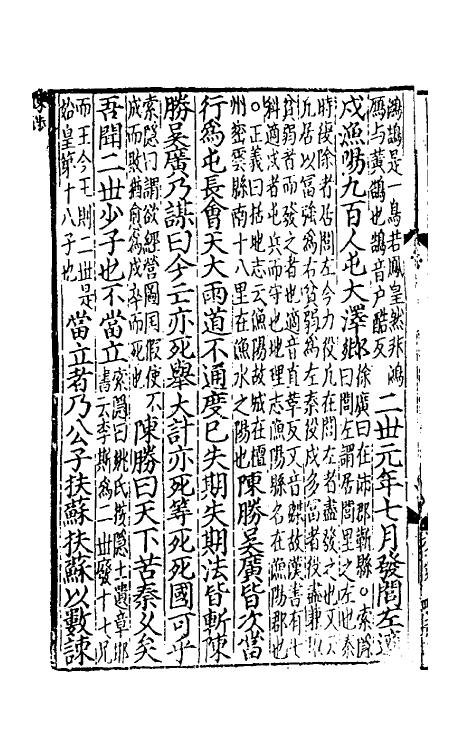 鴻鵠是一鳥若鳳皇然非鴻
鴈与黄鵠也鵠音戶酷反
二世元年七月發閭左適
戍漁陽九百人屯大澤鄉
徐廣曰在沛郡蘄縣○索隱
曰閭左謂居閭里之左也秦
時復除者居閭左今力役凡在閭左者盡發之也又云
凡居以富強爲右貧弱爲左秦役戍多富者役盡兼取
貧弱者而發之者也適音直革反又音磔故漢書有七
科適戍者屯兵而守也地理志漁陽縣名在漁陽郡也
○正義曰括地志云漁陽故城在檀
州密雲縣南十八里在漁水之陽也
陳勝吳廣皆次當
行爲屯長會天大雨道不通度已失期失期法皆斬陳
勝吳廣乃謀曰今亡亦死舉大計亦死等死死國可乎
索隱曰謂欲經營圖囯假使不
成而敗猶愈爲戍卒而死也
陳勝曰天下苦秦久矣
吾聞二世少子也不當立
索隱曰姚氏按隱士遺章邯
書云李斯爲二世廢十七兄
而王今王則二世是
始皇第十八子也
當立者乃公子扶蘇扶蘇以數諫